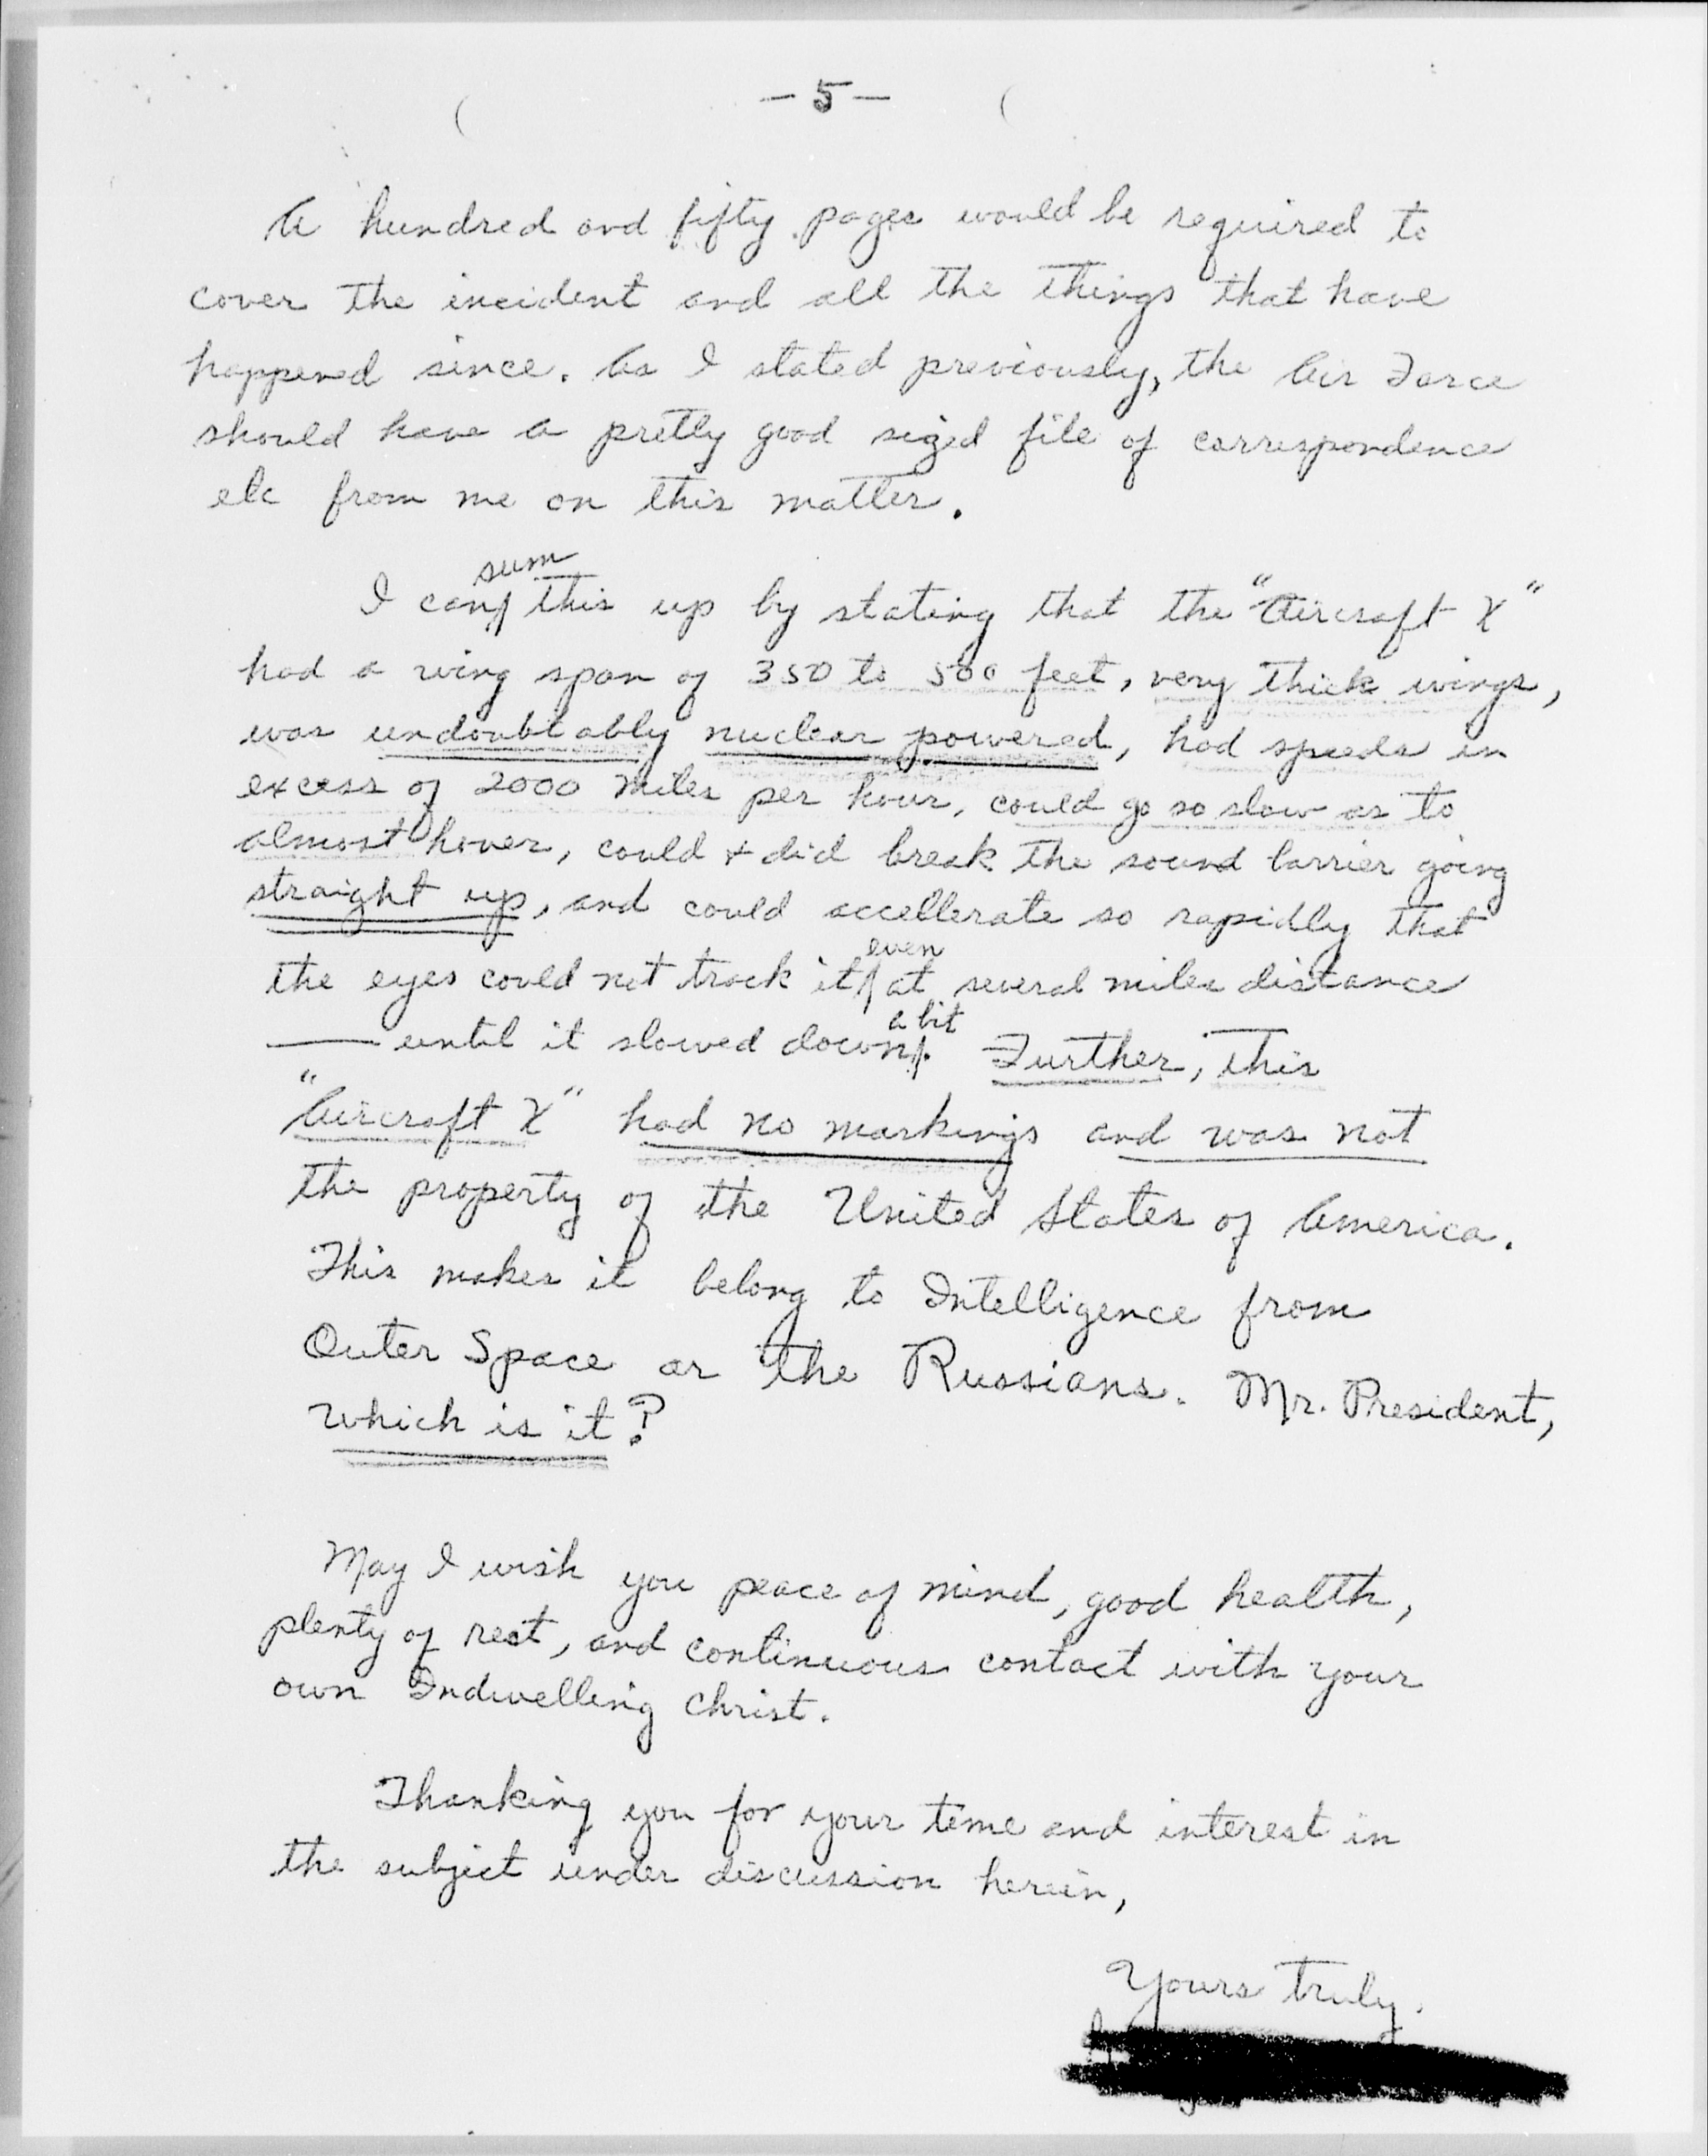 - 5 -
A hundred and fifty pages would be required to
cover the incident and all the things that have
happened since. As I stated previously, the Air Force
should have a pretty good sized file of correspondence
etc from me on this matter.
I can sum this up by stating that the "Aircraft X"
had a wing span of 350 to 500 feet, very thick wings,
was undoubtably nuclear powered, had speeds in
excess of 2000 miles per hour, could go so slow as to
almost hover, could & did break the sound barrier going
straight up, and could accellerate so rapidly that
the eyes could not track it even at several miles distance
— until it slowed down a bit. Further, this
"Aircraft X" had no markings and was not
the property of the United States of America.
This makes it belong to Intelligence from
Outer Space or the Russians. Mr. President,
which is it?
May I wish you peace of mind, good health,
plenty of rest, and continuous contact with your
own Indwelling Christ.
Thanking you for your time and interest in
the subject under discussion herein,
Yours truly.